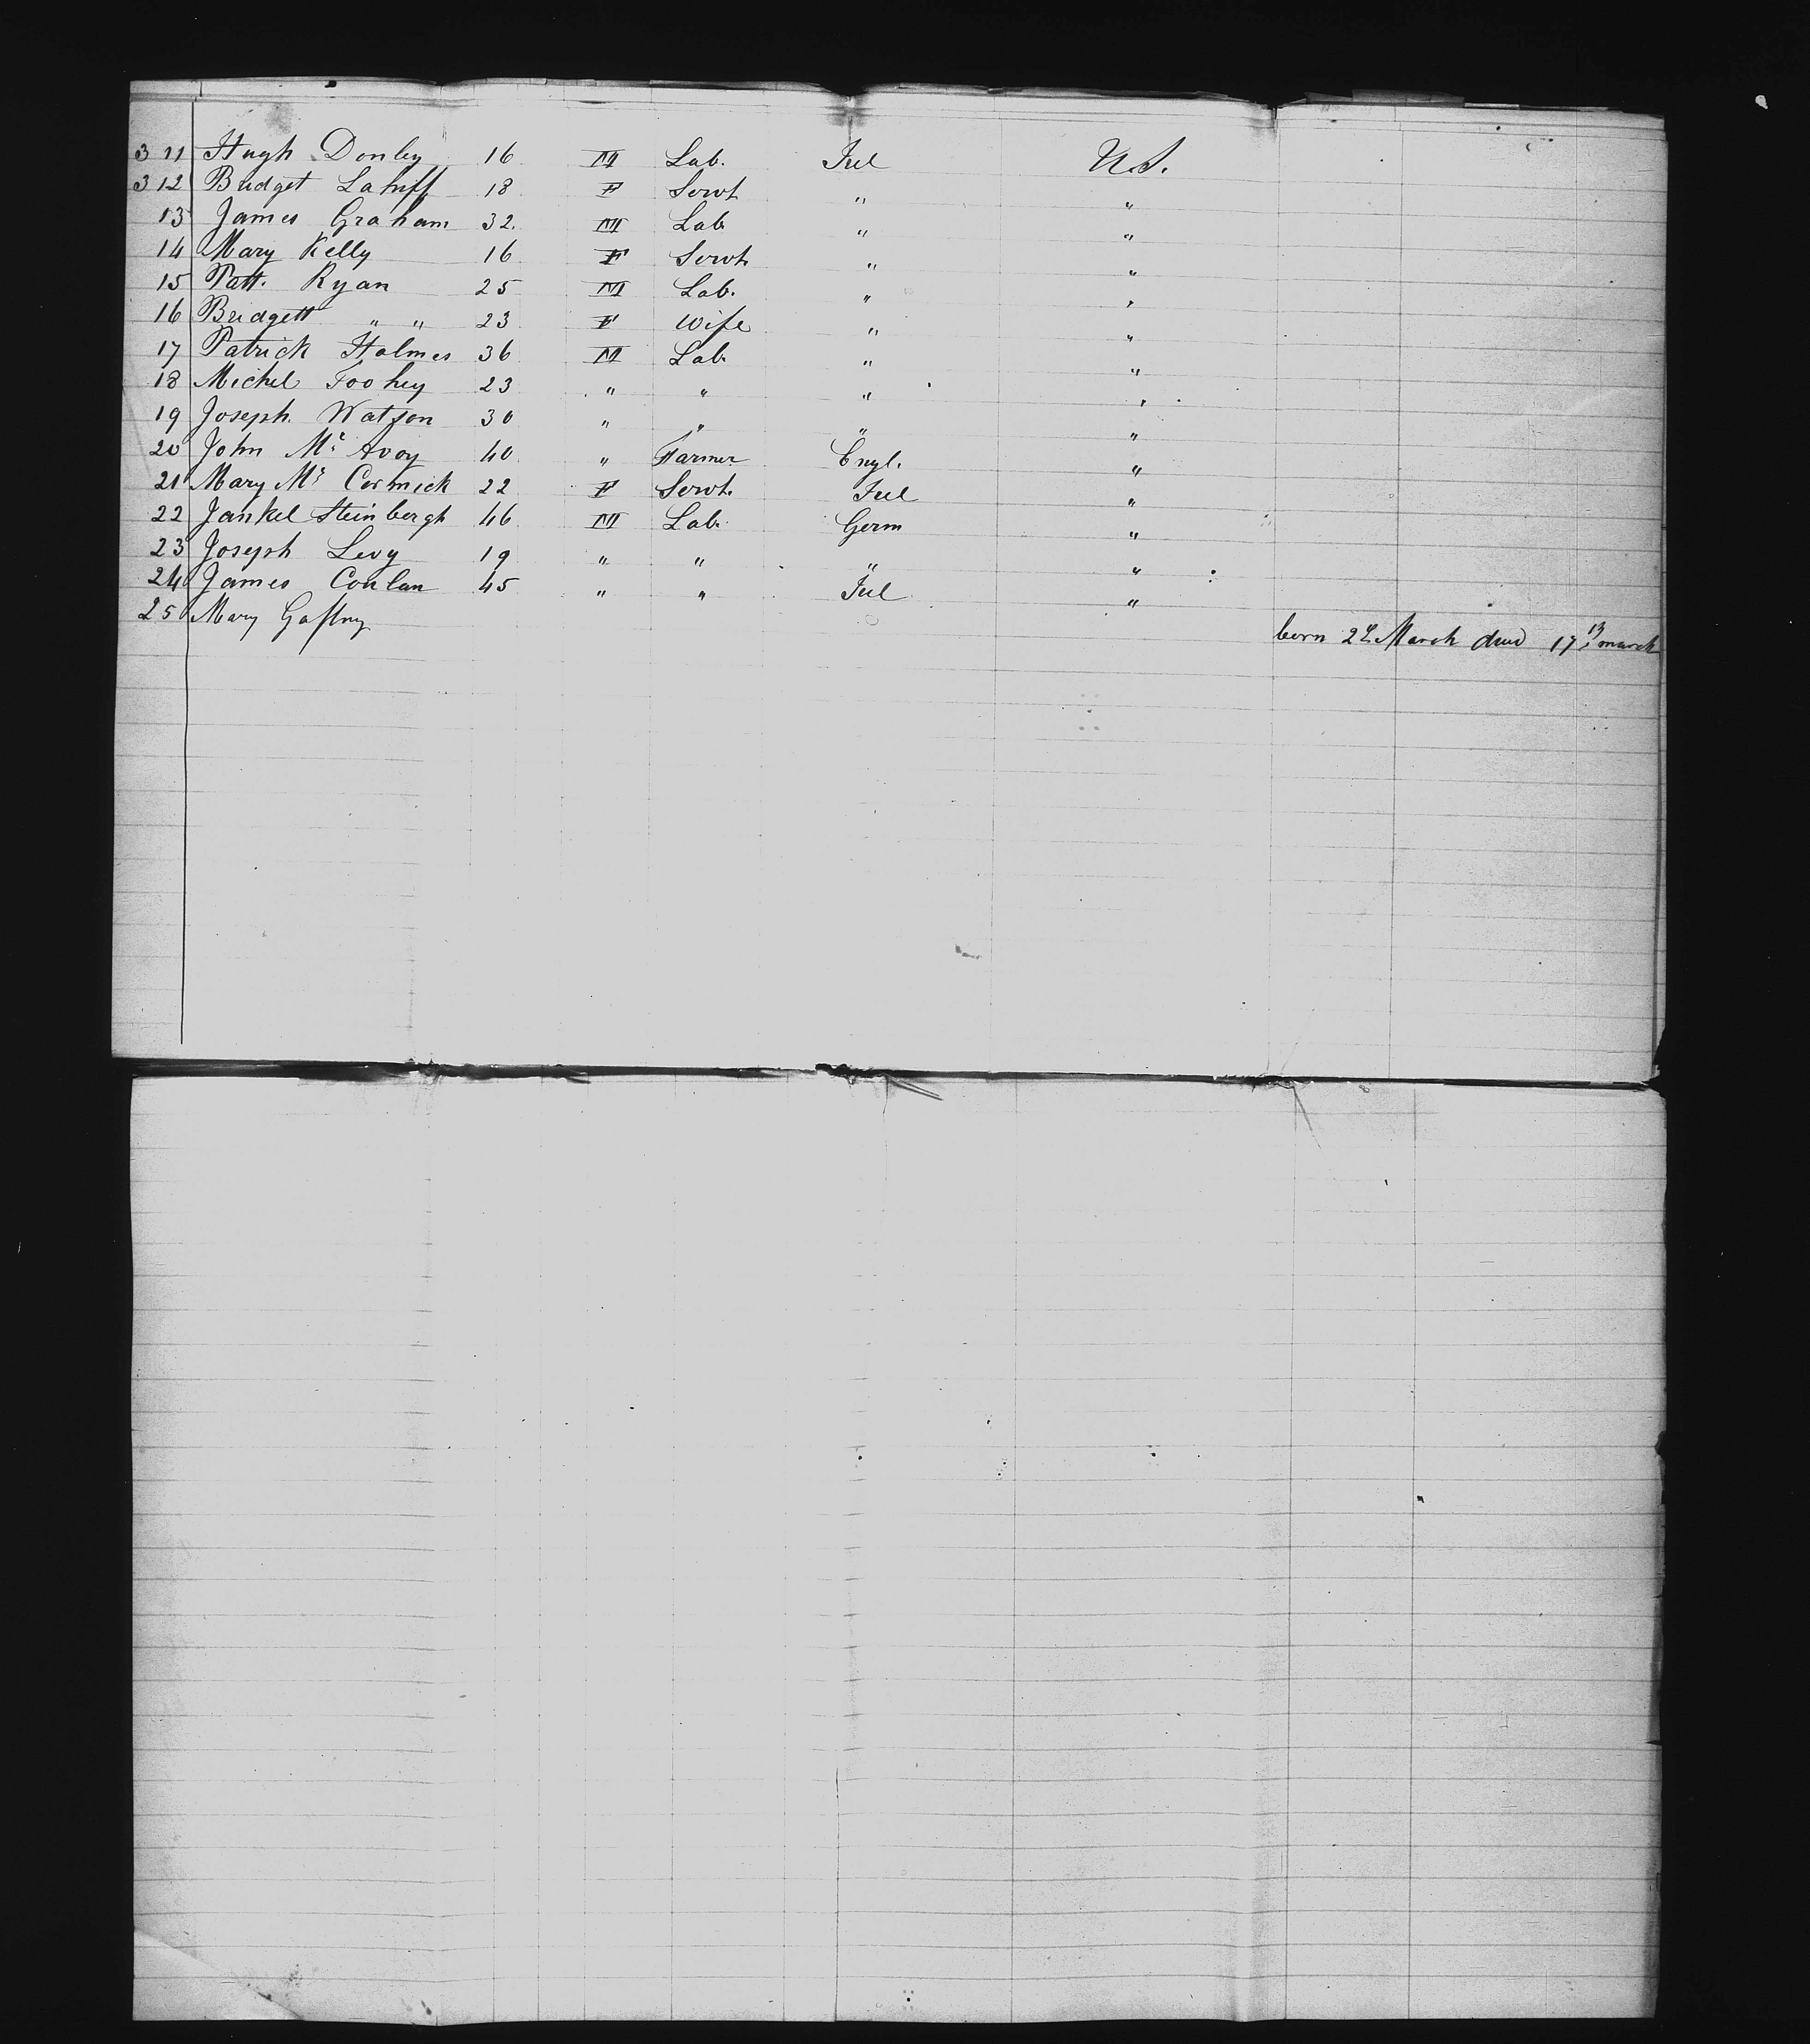 3 11 Hugh Donley 16 M Lab. Irel U.S.
3 12 Bridget Lahiff 18 F Servt " "
13 James Graham 32. M Lab " "
14 Mary Kelly 16 F Servt " "
15 Patt. Ryan 25 M Lab. " "
16 Bridgett " " 23 F Wife " "
17 Patrick Holmes 36 M Lab. " "
18 Michel Toohey 23 " " " "
19 Joseph Watson 30 " " " "
20 John Mc Avoy 40 " Farmer Engl. "
21 Mary Mc Cormick 22 F Servt. Irel "
22 Jankel Steinbergh 46 M Lab. Germ "
23 Joseph Levy 19 " " " "
24 James Conlan 45 " " Irel "
25 Mary Gafny born 2d March died 17 march